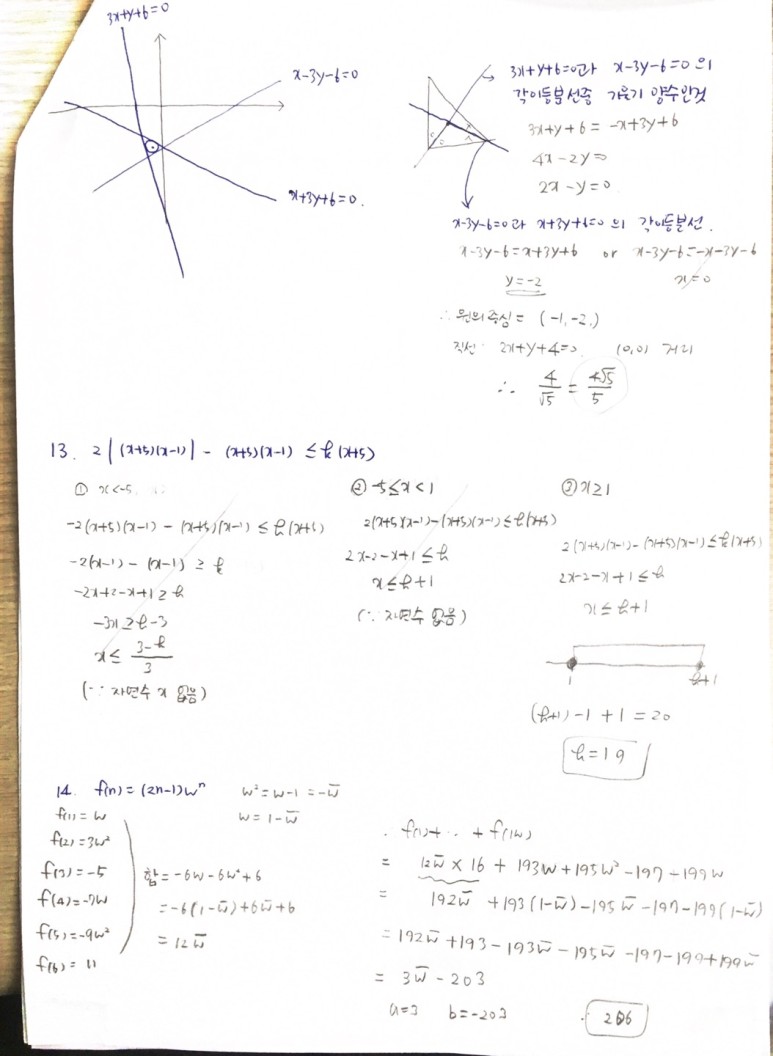 3x+y+6=0
x-3y-6=0
x+3y+6=0.
3x+y+6=0과 x-3y-6=0 의
각이등분선중 기울기 양수인것
3x+y+6 = -x+3y+6
4x-2y=0
2x-y=0.
x-3y-6=0과 x+3y+6=0 의 각이등분선.
x-3y-6=x+3y+6 or x-3y-6=-x-3y-6
y=-2 x=0
∴ 원의 중심 = (-1,-2,)
직선: 2x+y+4=0. (0,0) 거리
∴ 4/√5 = 4√5/5
13. 2|(x+5)(x-1)| - (x+5)(x-1) ≤ k(x+5)
① x<-5
-2(x+5)(x-1) - (x+5)(x-1) ≤ k(x+5)
-2(x-1) - (x-1) ≥ k
-2x+2-x+1 ≥ k
-3x ≥ k-3
x ≤ (3-k)/3
(∵ 자연수 x 없음)
② -5≤x<1
2(x+5)(x-1)-(x+5)(x-1) ≤ k(x+5)
2x-2-x+1 ≤ k
x ≤ k+1
(∵ 자연수 없음)
③ x≥1
2(x+5)(x-1)-(x+5)(x-1) ≤ k(x+5)
2x-2-x+1 ≤ k
x ≤ k+1
1 k+1
(k+1)-1+1=20
k=19
14. f(n) = (2n-1)w^n w²=w-1=-w̄
w=1-w̄
f(1)=w
f(2)=3w²
f(3)=-5
f(4)=-7w
f(5)=-9w²
f(6)=11
합=-6w-6w²+6
=-6(1-w̄)+6w̄+6
=12w̄
= 12w̄×16+193w+195w²-197-199w
= 192w̄+193(1-w̄)-195w̄-197-199(1-w̄)
=192w̄+193-193w̄-195w̄-197-199+199w̄
= 3w̄-203
a=3 b=-203
206